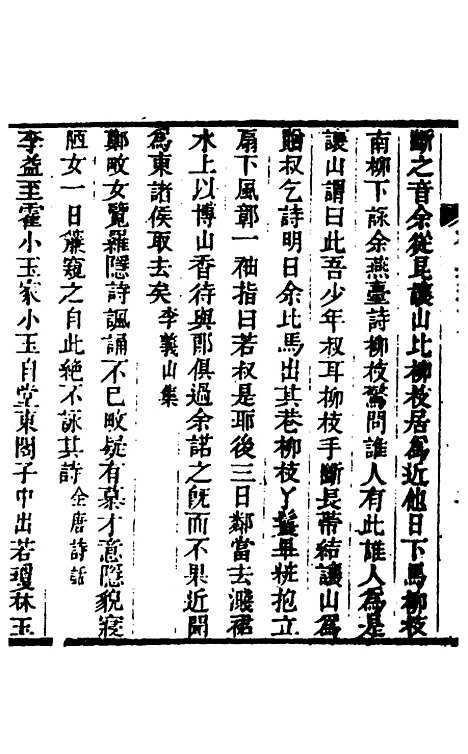 斷之音余從昆讓山比柳枝居爲近他日下馬柳枝
南柳下詠余燕臺詩柳枝驚問誰人有此誰人爲是
讓山謂曰此吾少年叔耳柳枝手斷長帶結讓山爲
贈叔乞詩明日余比馬出其巷柳枝丫鬟畢粧抱立
扇下風鄣一袖指曰若叔是耶後三日鄰當去濺裙
水上以博山香待與郎俱過余諾之旣而不果近聞
爲東諸侯取去矣 李義山集
鄭畋女覽羅隱詩諷誦不已畋疑有慕才意隱貌寢
陋女一日簾窺之自此絶不詠其詩 全唐詩話
李益至霍小玉家小玉自堂東閤子中出若瓊林玉